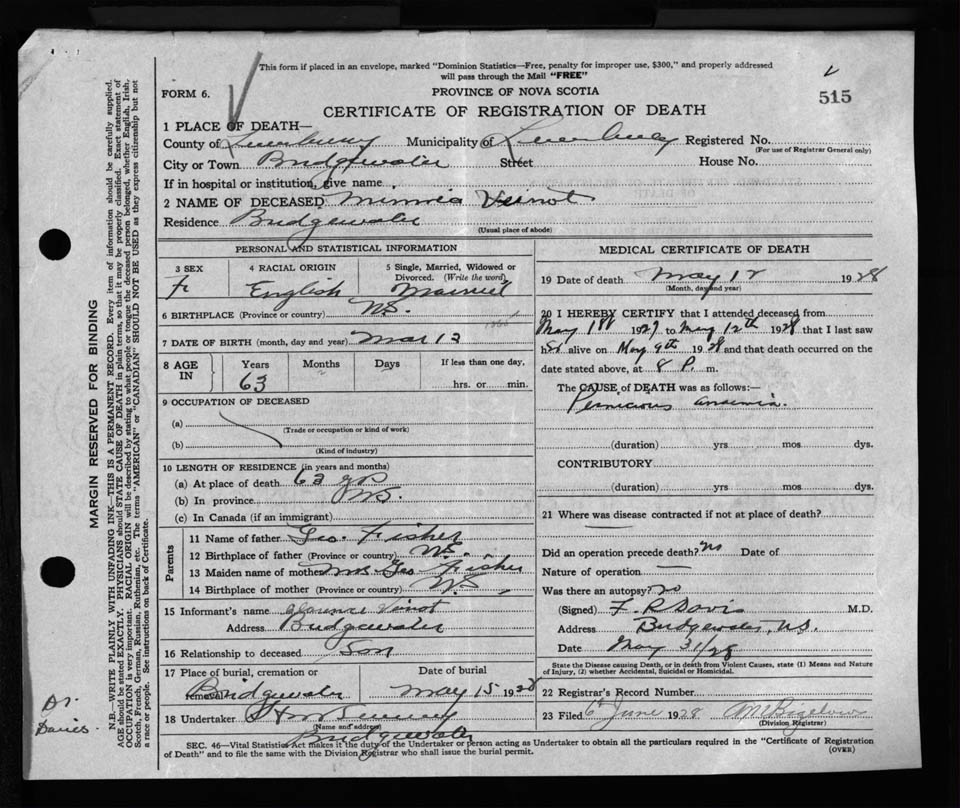 This form if placed in an envelope, marked "Dominion Statistics—Free, penalty for improper use, $300," and properly addressed
will pass through the Mail "FREE"
FORM 6.
PROVINCE OF NOVA SCOTIA
515
CERTIFICATE OF REGISTRATION OF DEATH
1 PLACE OF DEATH—
County of Lunenburg Municipality of Lunenburg Registered No.
(For use of Registrar General only)
City or Town Bridgewater Street House No.
If in hospital or institution, give name
2 NAME OF DECEASED Minnie Veinot
Residence Bridgewater
(Usual place of abode)
PERSONAL AND STATISTICAL INFORMATION
3 SEX
F
4 RACIAL ORIGIN
English
5 Single, Married, Widowed or
Divorced. (Write the word)
Married
6 BIRTHPLACE (Province or country) N.S.
7 DATE OF BIRTH (month, day and year) Mar 13
8 AGE
IN
Years
63
Months
Days
If less than one day,
hrs. or min.
9 OCCUPATION OF DECEASED
(a)
(Trade or occupation or kind of work)
(b)
(Kind of industry)
10 LENGTH OF RESIDENCE (in years and months)
(a) At place of death 63 yrs
(b) In province N.S.
(c) In Canada (if an immigrant)
Parents
11 Name of father Geo. Fisher
12 Birthplace of father (Province or country) N.S.
13 Maiden name of mother Mrs Geo Fisher
14 Birthplace of mother (Province or country) N.S.
15 Informant's name Clarence Veinot
Address Bridgewater
16 Relationship to deceased Son
17 Place of burial, cremation or
Bridgewater
Date of burial
May 15 1928
18 Undertaker
(Name and address)
Bridgewater
MEDICAL CERTIFICATE OF DEATH
19 Date of death May 12 1928
(Month, day and year)
20 I HEREBY CERTIFY that I attended deceased from
May 1st 1927 to May 12th 1928 that I last saw
her alive on May 9th 1928 and that death occurred on the
date stated above, at 8 P. m.
The CAUSE of DEATH was as follows:—
Pernicious anaemia.
(duration) yrs mos dys.
CONTRIBUTORY
(duration) yrs mos dys.
21 Where was disease contracted if not at place of death?
Did an operation precede death? no Date of
Nature of operation —
Was there an autopsy? no
(Signed) F. R Davis M.D.
Address Bridgewater, N.S.
Date May 31/28
State the Disease causing Death, or in death from Violent Causes, state (1) Means and Nature
of Injury, (2) whether Accidental, Suicidal or Homicidal.
22 Registrar's Record Number
23 Filed 6th June 1928
(Division Registrar)
SEC. 46—Vital Statistics Act makes it the duty of the Undertaker or person acting as Undertaker to obtain all the particulars required in the "Certificate of Registration
of Death" and to file the same with the Division Registrar who shall issue the burial permit.
(OVER)
MARGIN RESERVED FOR BINDING
N.B.—WRITE PLAINLY WITH UNFADING INK—THIS IS A PERMANENT RECORD. Every item of information should be carefully supplied.
AGE should be stated EXACTLY. PHYSICIANS should STATE CAUSE OF DEATH in plain terms, so that it may be properly classified. Exact statement of
OCCUPATION is very important. RACIAL ORIGIN will be described by stating to what people or tongue the deceased person belonged, whether English, Irish,
Scotch, French, German, Russian, Ruthenian, etc. The terms "AMERICAN" or "CANADIAN" SHOULD NOT BE USED as they express citizenship but not
a race or people. See instructions on back of Certificate.
Dr.
Davies